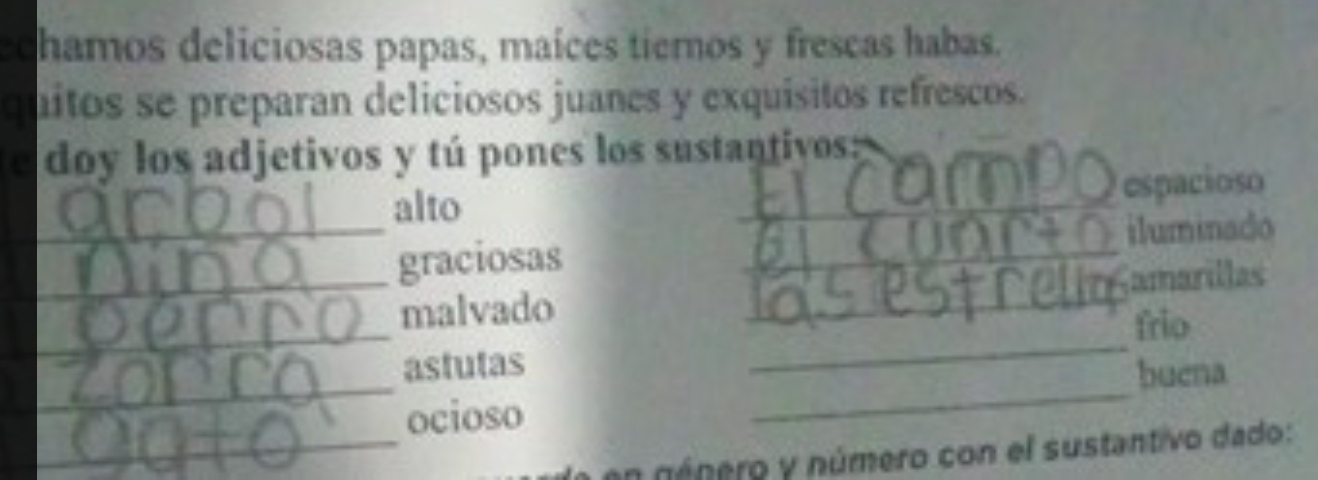 echamos deliciosas papas, maíces tiernos y frescas habas.
quitos se preparan deliciosos juanes y exquisitos refrescos.
te doy los adjetivos y tú pones los sustantivos:
arbol alto
niña graciosas
perro malvado
zorra astutas
gato ocioso
El campo espacioso
el cuarto iluminado
las estrellas amarillas
frio
buena
en género y número con el sustantivo dado: